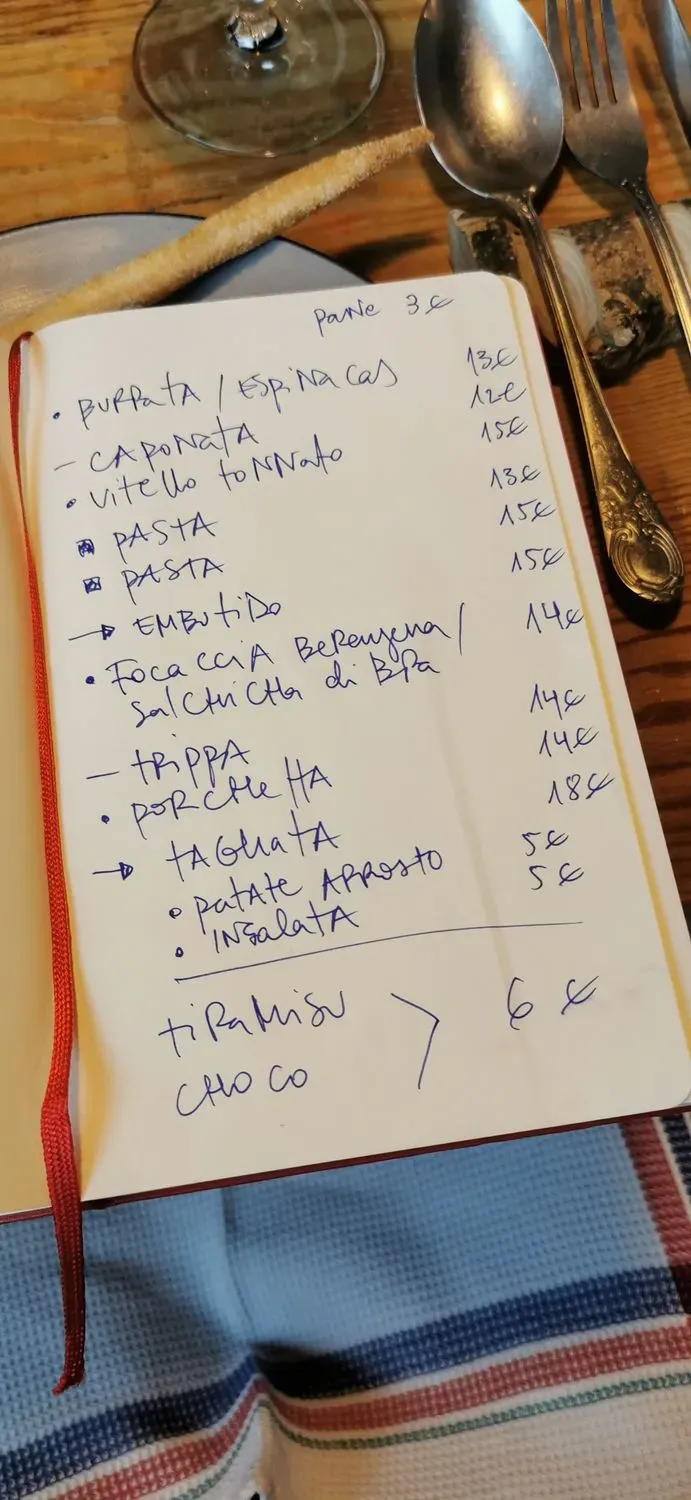 pane 3€
• BURRATA / ESPINACAS 13€
- CAPONATA 12€
• Vitello tonnato 15€
▪ PASTA 13€
▪ PASTA 15€
→ EMBUTIDO 15€
• FOCACCIA Berenjena/ 14€
SalCHICHA di BRA
- TRIPPA 14€
• PORCHETTA 14€
→ TAGLIATA 18€
• PATATE ARROSTO 5€
• INSalATA 5€
TIRAMISU > 6€
CHOCO